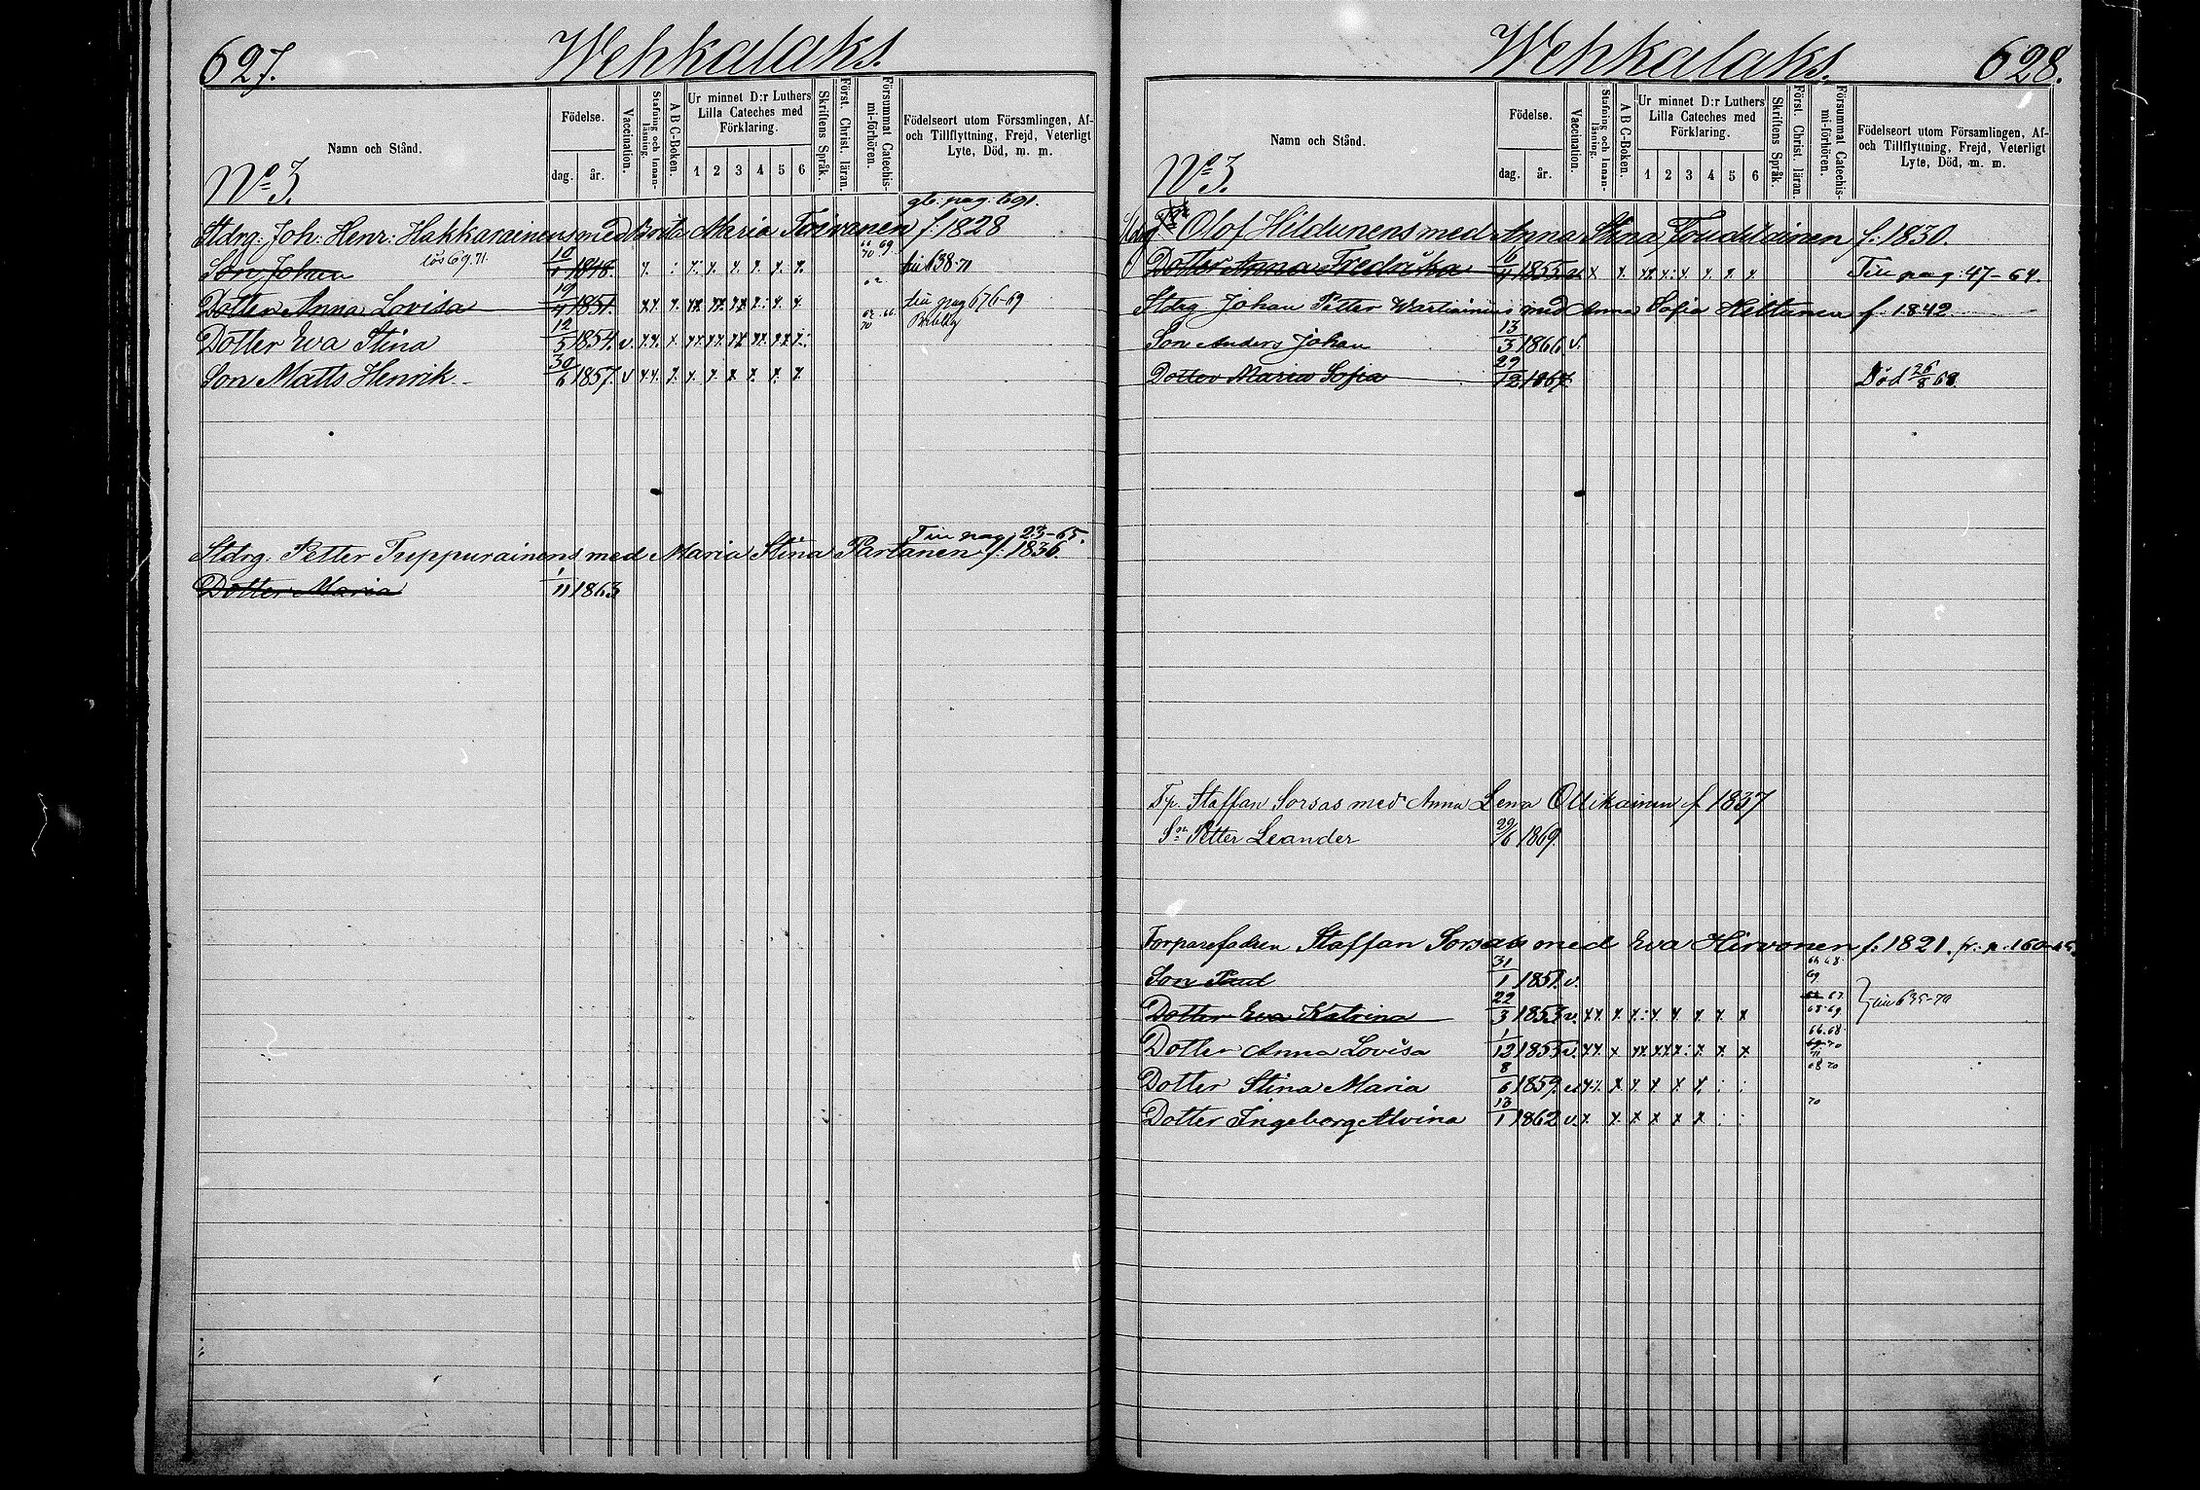 627. Wehkalaks.
Namn och Stånd.
Födelse.
dag. år.
Vaccination.
Stafning och Innanläsning.
A B C-Boken.
Ur minnet D:r Luthers Lilla Cateches med Förklaring.
1 2 3 4 5 6
Skriftens Språk.
Först. Christ. läran.
Försummat Catechismi-förhören.
Födelseort utom Församlingen, Af- och Tillflyttning, Frejd, Veterligt Lyte, Död, m. m.
No 3.
pag. 691.
Stdrg. Joh: Henr: Hakkarainens med Maria Toivanen f. 1828
Son Johan lös 69.71. 1848. 638-71
Dotter Anna Lovisa 19/4 1851. till pag 676-69
Dotter Eva Stina 12/5 1854. v
Son Matts Henrik 30/6 1857. v
Till pag. 23-65.
Stdrg. Petter Tuppurainens med Maria Stina Partanen f. 1836.
Dotter Maria 1/11 1863
Wehkalaks. 628.
Namn och Stånd.
Födelse.
dag. år.
Vaccination.
Stafning och Innanläsning.
A B C-Boken.
Ur minnet D:r Luthers Lilla Cateches med Förklaring.
1 2 3 4 5 6
Skriftens Språk.
Först. Christ. läran.
Försummat Catechismi-förhören.
Födelseort utom Församlingen, Af- och Tillflyttning, Frejd, Veterligt Lyte, Död, m. m.
No 3.
Olof Hildunens med Anna Stina f. 1830.
Dotter Anna Fredrika 6/4 1855 Till pag: 47-64.
Stdrg Johan Petter med Anna Sofia Hiltunen f. 1842
Son Anders Johan 13/3 1866 v.
Dotter Maria Sofia 29/12 1867 Död 26/8 68
Tp. Staffan Sorsas med Anna Lena Ollikainen f 1837
Sn Petter Leander 29/6 1869.
Staffan Sorsas med Eva Hirvonen f. 1821. fr. p. 160-65.
Son Paul 31/1 1851. v.
Dotter Eva Katrina 22/3 1853 v. till 635-70
Dotter Anna Lovisa 1/12 1855 v.
Dotter Stina Maria 8/6 1859. v
Dotter Ingeborg Alvina 13/1 1862 v.